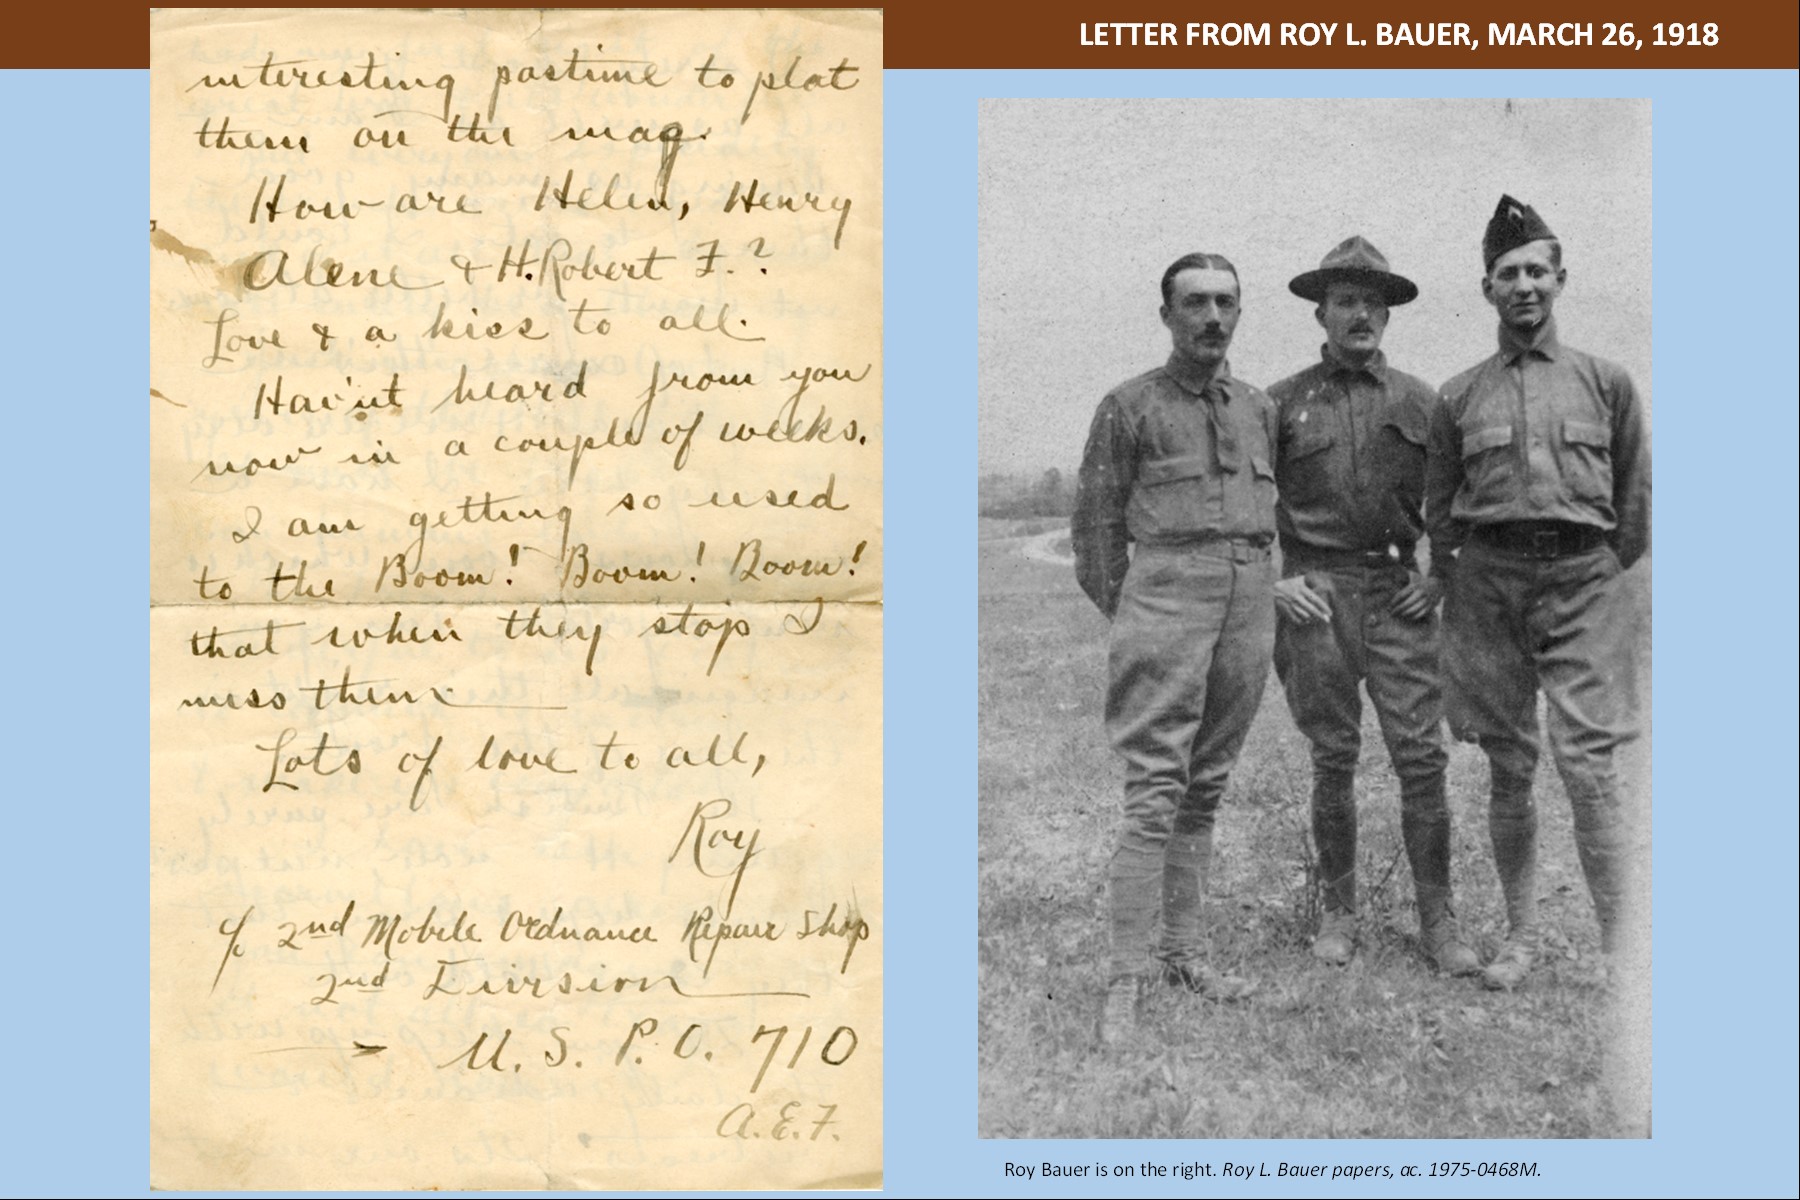 LETTER FROM ROY L. BAUER, MARCH 26, 1918
interesting pastime to plot
them on the map.
How are Helen, Henry
Alene & H. Robert F.?
Love & a kiss to all.
Hav'nt heard from you
now in a couple of weeks.
I am getting so used
to the Boom! Boom! Boom!
that when they stop I
miss them.
Lots of love to all,
Roy
c/o 2nd Mobile Ordnance Repair Shop
2nd Division
U. S. P. O. 710
A.E.F.
Roy Bauer is on the right. Roy L. Bauer papers, ac. 1975-0468M.